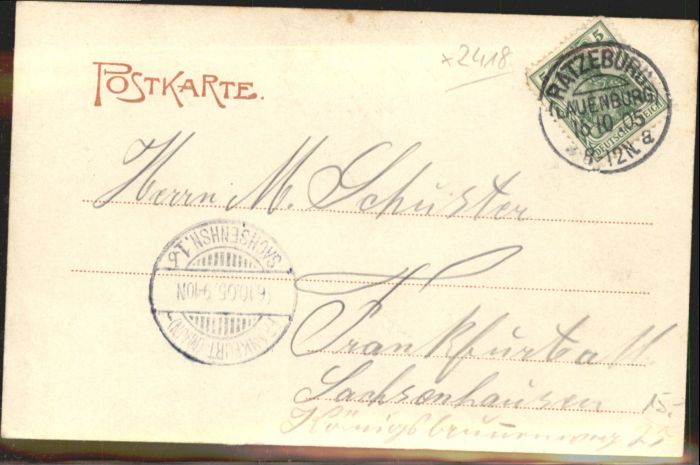 *2418
POSTKARTE.
RATZEBURG
(LAUENBURG)
16.10.05
8-12N. a
5
DEUTSCHES REICH
Herrn M. Schuster
SACHSENHSN. 1.b
6.10.05. 9-10N
(FRANKFURT (MAIN)
Frankfurt a M
Sachsenhausen
15.-
Königsbrunnenweg 27